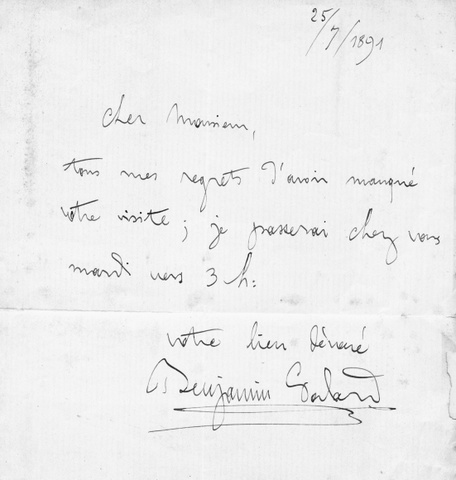 25/7/1891
Cher Monsieur,
tous mes regrets d'avoir manqué
votre visite ; je passerai chez vous
mardi vers 3 h :
votre bien dévoué
Benjamin Godard